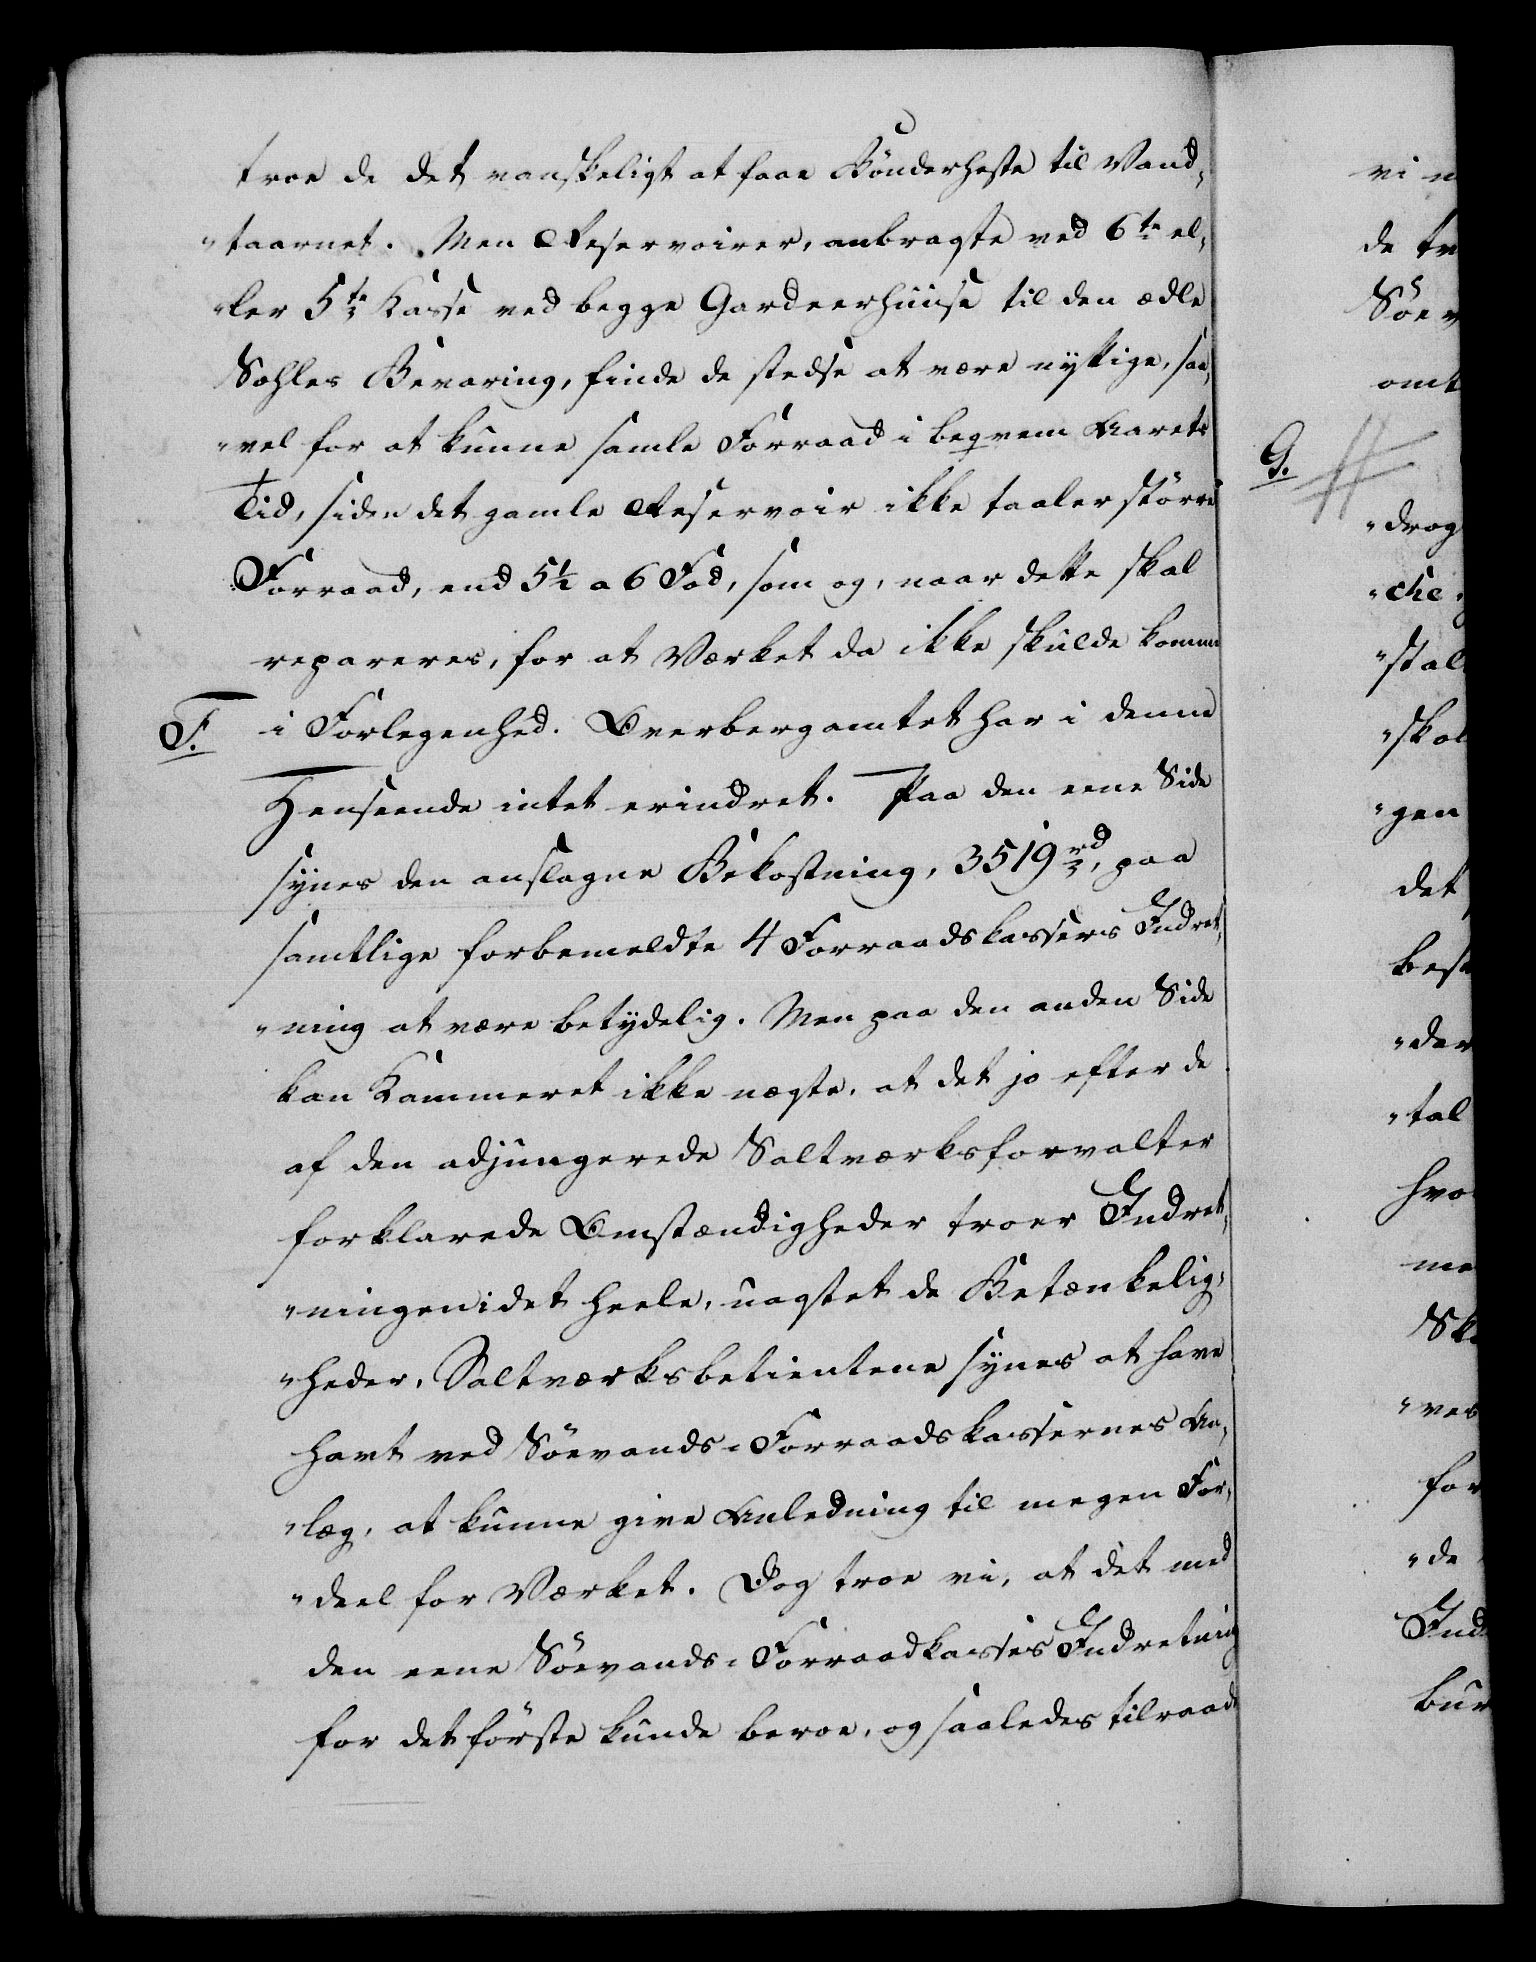 troe de det vanskeligt at faae Bönderheste til Vand-
"taarnet. Men Reservoirer, anbragte ved 6te el-
"ler 5te Kasse ved begge Gardeerhuuse til den ædle
Sohles Bevaring, finde de stedse at være nyttige, saa-
"vel for at kunne samle Forraad i beqvem Aarets
Tid, siden det gamle Reservoir ikke taaler större
Forraad, end 5½ a 6 Fod, som og, naar dette skal
repareres, for at Værket da ikke skulde komme
F. i Forlegenhed. Overbergamtet har i denne
Henseende intet erindret. Paa den eene Side
synes den anslagne Bekostning, 3519 rd, paa
samtlige forbemeldte 4 Forraadskassers Indret-
"ning at være betydelig. Men paa den anden Side
kan Kammeret ikke nægte, at det jo efter de
af den adjungerede Saltværksforvalter
forklarede Omstændigheder troer Indret-
"ningen i det heele, uagtet de Betænkelig-
"heder, Saltværksbetientene synes at have
havt ved Söevands-Forraadskassernes An-
"læg, at kunne give Anledning til megen For-
"deel for Værket. Dog troe vi, at det med
den eene Söevands-Forraadkasses Indretning
for det förste kunde beroe, og saaledes tilraade
vi
de
Söe
omt
G.
"drog
"che
"stal
"skal
"gen
det
best
"der
"tal
hvo
me
Sk
"ves
for
"de
Ind
bur